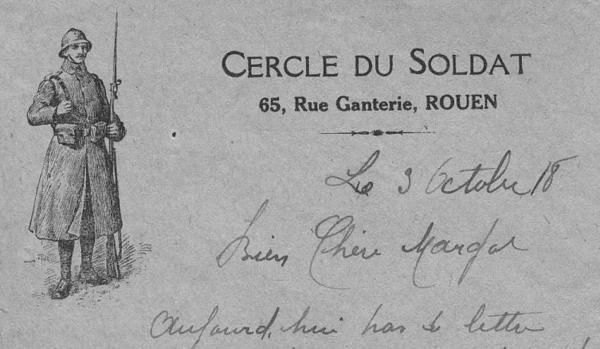 CERCLE DU SOLDAT
65, Rue Ganterie, ROUEN
Le 3 Octobre 18
Bien Chère Margot
Aujourd'hui pas de lettre